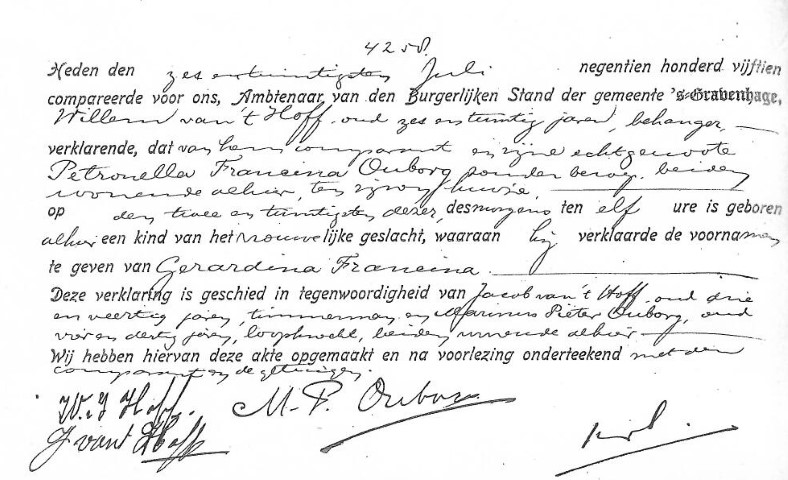 4258.
Heden den zes en twintigsten Juli negentien honderd vijftien
compareerde voor ons, Ambtenaar van den Burgerlijken Stand der gemeente 's-Gravenhage,
Willem van 't Hoff, oud zes en twintig jaren, behanger,
verklarende, dat van hem comparant en zijne echtgenoote
Petronella Francina Ouborg zonder beroep, beiden
wonende alhier, ten zijnen huize,
op den twee en twintigsten dezer, desmorgens ten elf ure is geboren
alhier een kind van het vrouwelijke geslacht, waaraan hij verklaarde de voornamen
te geven van Gerardina Francina.
Deze verklaring is geschied in tegenwoordigheid van Jacob van 't Hoff, oud drie
en veertig jaren, timmerman en Marinus Pieter Ouborg, oud
vier en dertig jaren, loopknecht, beiden wonende alhier
Wij hebben hiervan deze akte opgemaakt en na voorlezing onderteekend met den
comparant en de getuigen.
W. v 't Hoff. M. P. Ouborg
J van t Hoff